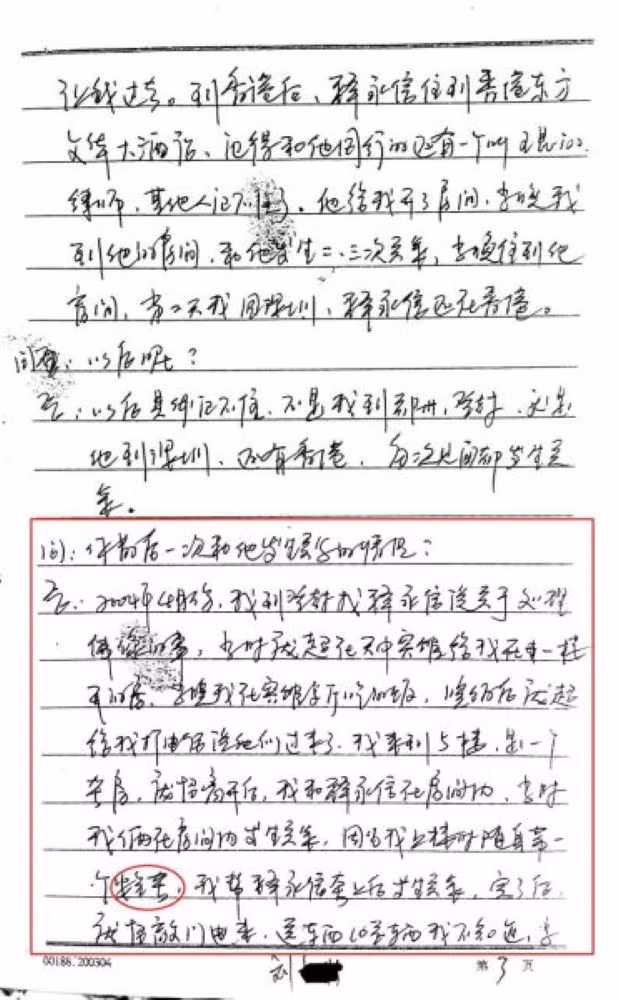 让我过去。到香港后，释永信住到香港东方
文华大酒店，记得和他同行的还有一个叫王
律师，其他人记不住了。他给我开了房间，当晚我
到他的房间，和他发生二、三次关系，当晚住到他
房间，第二天我回深圳，释永信还在香港。
问：以后呢？
答：以后具体记不住，不是我到郑州，登封，就是
他到深圳，还有香港，每次见面都发生关
系。
问：你最后一次和他发生关系的情况？
答：2004年4月份，我到登封找释永信谈关于处理
的事，当时 在天中宾馆给我在
的房，当晚我在宾馆餐厅吃的饭，
给我打电话说他们过来了，我来到5楼，是一个
套房， 离开后，我和释永信在房间内，当时
我们俩在房间内发生关系，因为我上楼时随身带一
个 ，我帮释永信套上后发生关系，完了后，
敲门进来， 我不知道，
00186.200304
刘
第3页